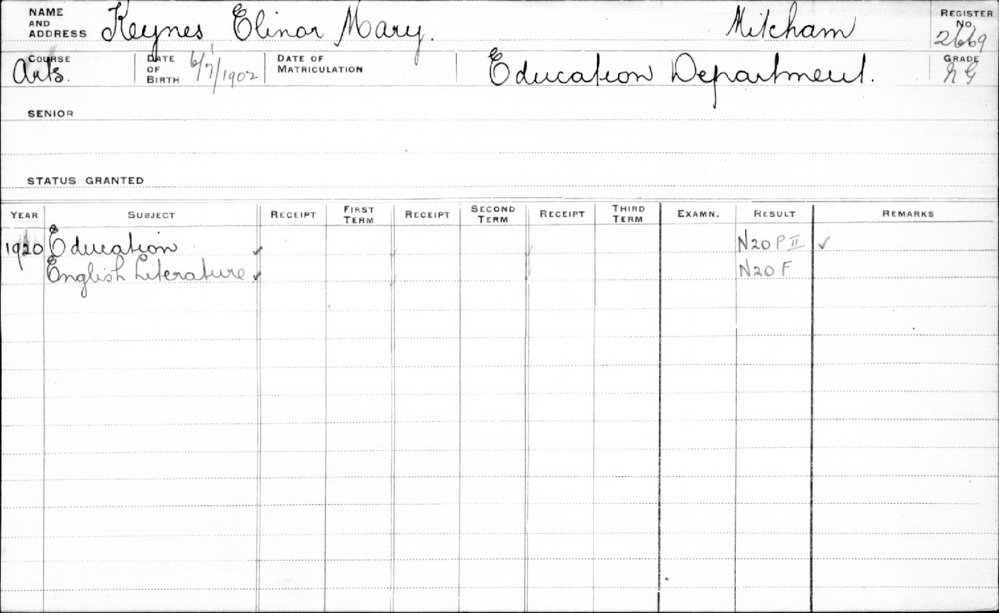 NAME AND ADDRESS Keynes, Elinor Mary. Mitcham REGISTER NO. 2669
COURSE Arts. DATE OF BIRTH 6/7/1902 DATE OF MATRICULATION Education Department. GRADE NG
SENIOR
STATUS GRANTED
YEAR SUBJECT RECEIPT FIRST TERM RECEIPT SECOND TERM RECEIPT THIRD TERM EXAMN. RESULT REMARKS
1920 Education ✓ N20 P II ✓
English Literature ✓ N20 F